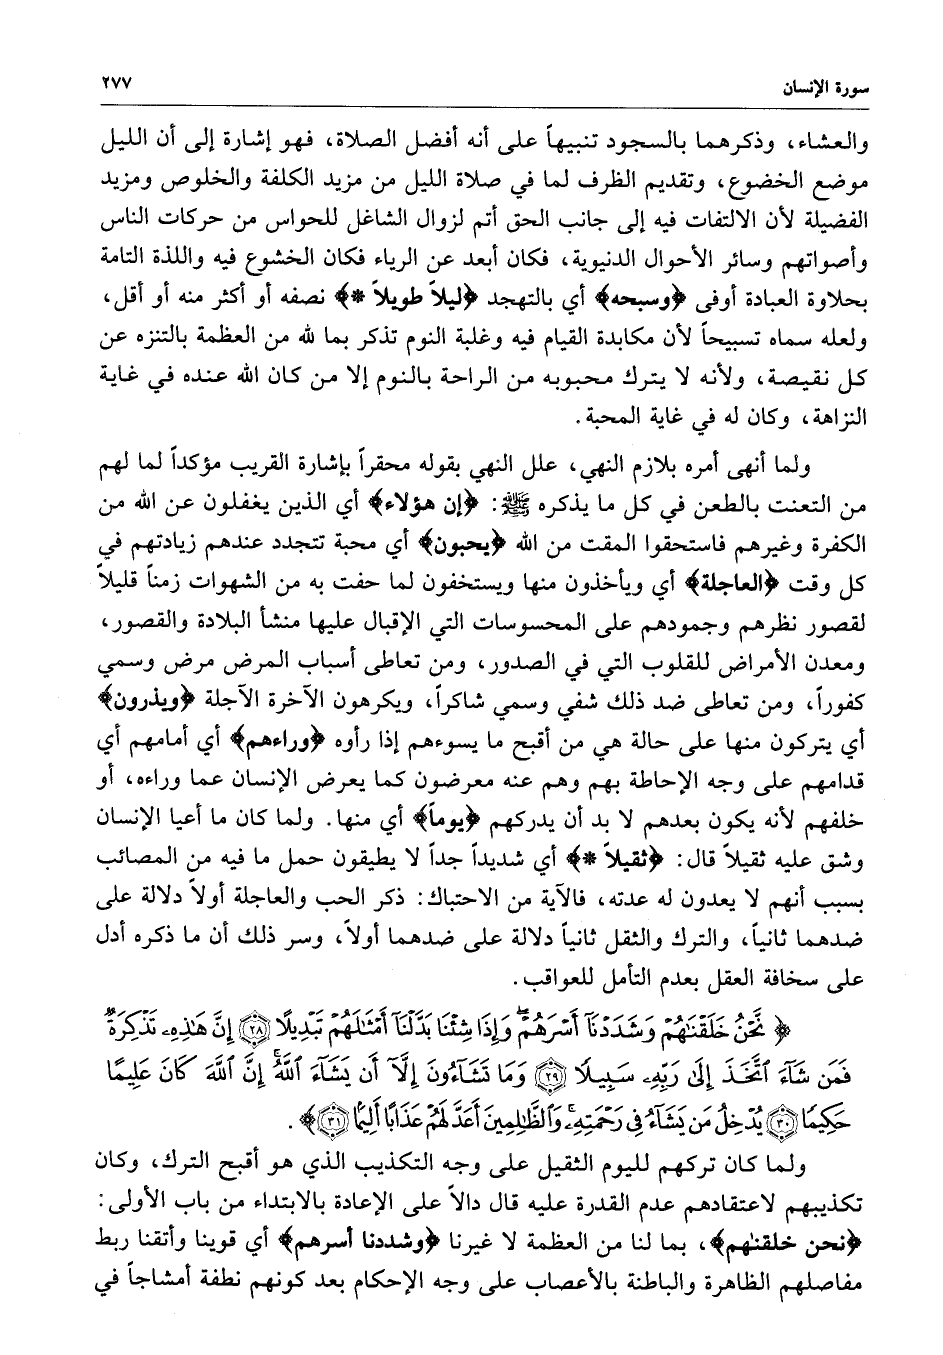 سورة الإنسان ٢٧٧
والعشاء، وذكرهما بالسجود تنبيهاً على أنه أفضل الصلاة، فهو إشارة إلى أن الليل
موضع الخضوع، وتقديم الظرف لما في صلاة الليل من مزيد الكلفة والخلوص ومزيد
الفضيلة لأن الالتفات فيه إلى جانب الحق أتم لزوال الشاغل للحواس من حركات الناس
وأصواتهم وسائر الأحوال الدنيوية، فكان أبعد عن الرياء فكان الخشوع فيه واللذة التامة
بحلاوة العبادة أوفى ﴿وسبحه﴾ أي بالتهجد ﴿ليلاً طويلاً *﴾ نصفه أو أكثر منه أو أقل،
ولعله سماه تسبيحاً لأن مكابدة القيام فيه وغلبة النوم تذكر بما لله من العظمة بالتنزه عن
كل نقيصة، ولأنه لا يترك محبوبه من الراحة بالنوم إلا من كان الله عنده في غاية
النزاهة، وكان له في غاية المحبة.
ولما أنهى أمره بلازم النهي، علل النهي بقوله محقراً بإشارة القريب مؤكداً لما لهم
من التعنت بالطعن في كل ما يذكره ﷺ: ﴿إن هؤلاء﴾ أي الذين يغفلون عن الله من
الكفرة وغيرهم فاستحقوا المقت من الله ﴿يحبون﴾ أي محبة تتجدد عندهم زيادتهم في
كل وقت ﴿العاجلة﴾ أي ويأخذون منها ويستخفون لما حفت به من الشهوات زمناً قليلاً
لقصور نظرهم وجمودهم على المحسوسات التي الإقبال عليها منشأ البلادة والقصور،
ومعدن الأمراض للقلوب التي في الصدور، ومن تعاطى أسباب المرض مرض وسمي
كفوراً، ومن تعاطى ضد ذلك شفي وسمي شاكراً، ويكرهون الآخرة الآجلة ﴿ويذرون﴾
أي يتركون منها على حالة هي من أقبح ما يسوءهم إذا رأوه ﴿وراءهم﴾ أي أمامهم أي
قدامهم على وجه الإحاطة بهم وهم عنه معرضون كما يعرض الإنسان عما وراءه، أو
خلفهم لأنه يكون بعدهم لا بد أن يدركهم ﴿يوماً﴾ أي منها. ولما كان ما أعيا الإنسان
وشق عليه ثقيلاً قال: ﴿ثقيلاً *﴾ أي شديداً جداً لا يطيقون حمل ما فيه من المصائب
بسبب أنهم لا يعدون له عدته، فالآية من الاحتباك: ذكر الحب والعاجلة أولاً دلالة على
ضدهما ثانياً، والترك والثقل ثانياً دلالة على ضدهما أولاً، وسر ذلك أن ما ذكره أدل
على سخافة العقل بعدم التأمل للعواقب.
﴿ نَّحْنُ خَلَقْنَٰهُمْ وَشَدَدْنَآ أَسْرَهُمْ ۖ وَإِذَا شِئْنَا بَدَّلْنَآ أَمْثَٰلَهُمْ تَبْدِيلًا ﴿٢٨﴾ إِنَّ هَٰذِهِۦ تَذْكِرَةٌ ۖ
فَمَن شَآءَ ٱتَّخَذَ إِلَىٰ رَبِّهِۦ سَبِيلًا ﴿٢٩﴾ وَمَا تَشَآءُونَ إِلَّآ أَن يَشَآءَ ٱللَّهُ ۚ إِنَّ ٱللَّهَ كَانَ عَلِيمًا
حَكِيمًا ﴿٣٠﴾ يُدْخِلُ مَن يَشَآءُ فِى رَحْمَتِهِۦ ۚ وَٱلظَّٰلِمِينَ أَعَدَّ لَهُمْ عَذَابًا أَلِيمًۢا ﴿٣١﴾﴾.
ولما كان تركهم لليوم الثقيل على وجه التكذيب الذي هو أقبح الترك، وكان
تكذيبهم لاعتقادهم عدم القدرة عليه قال دالاً على الإعادة بالابتداء من باب الأولى:
﴿نحن خلقنٰهم﴾، بما لنا من العظمة لا غيرنا ﴿وشددنا أسرهم﴾ أي قوينا وأتقنا ربط
مفاصلهم الظاهرة والباطنة بالأعصاب على وجه الإحكام بعد كونهم نطفة أمشاجاً في